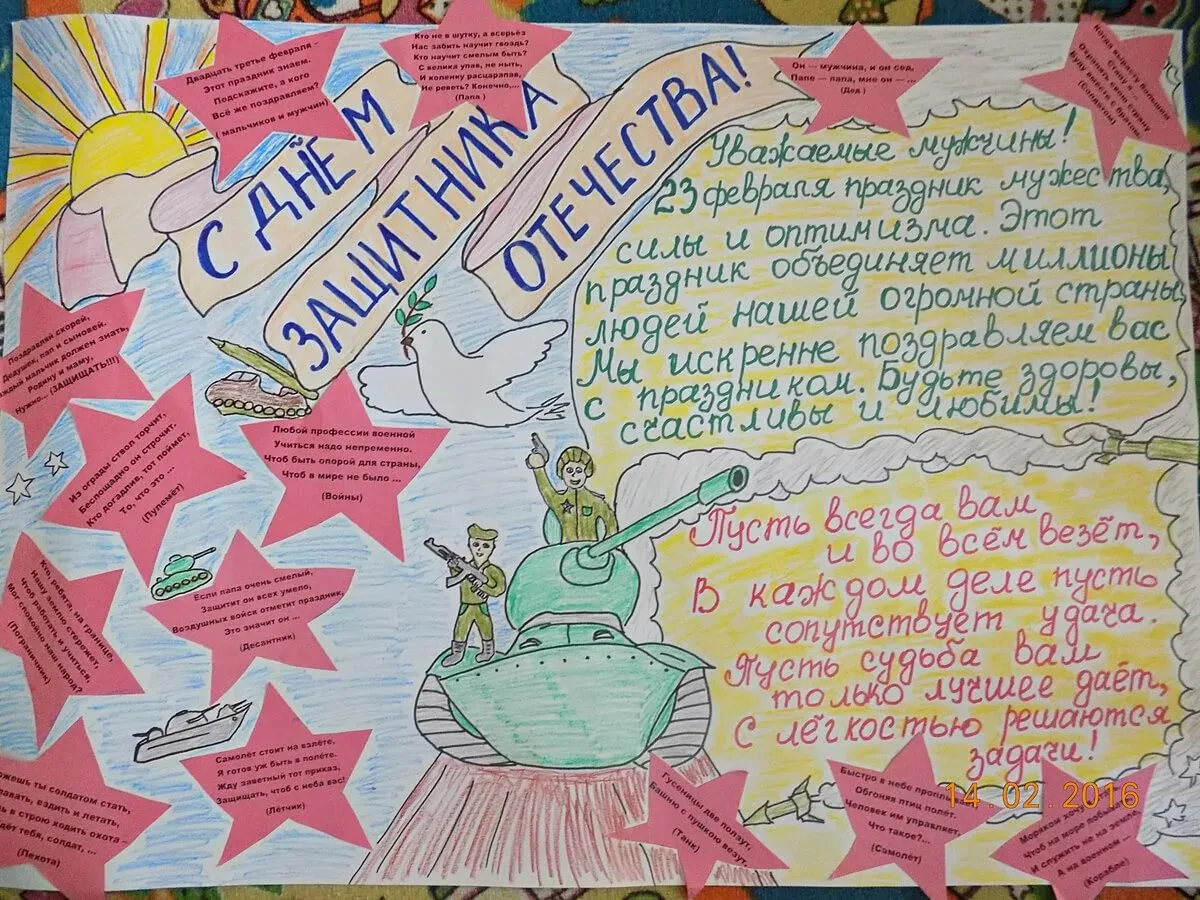 С ДНЁМ
ЗАЩИТНИКА
ОТЕЧЕСТВА!
Двадцать третье февраля -
Этот праздник знаем.
Подскажите, а кого
Всё же поздравляем?
( мальчиков и мужчин)
Кто не в шутку, а всерьёз
Нас забить научит гвоздь?
Кто научит смелым быть?
С велика упав, не ныть,
И коленку расцарапав,
Не реветь? Конечно,...
(Папа )
Он — мужчина, и он сед,
Папе — папа, мне он — ...
(Дед )
Когда вырасту большим
Стану я ...
Охранять свою страну
Буду вместе с братом
(Солдатом)
Уважаемые мужчины!
23 февраля праздник мужества,
силы и оптимизма. Этот
праздник объединяет миллионы
людей нашей огромной страны,
Мы искренне поздравляем вас
с праздником. Будьте здоровы,
счастливы и любимы!
Поздравляй скорей,
Дедушек, пап и сыновей.
каждый мальчик должен знать,
Родину и маму,
Нужно... (ЗАЩИЩАТЬ!!!)
Из ограды ствол торчит,
Беспощадно он строчит.
Кто догадлив, тот поймет,
То, что это ...
(Пулемёт)
Любой профессии военной
Учиться надо непременно.
Чтоб быть опорой для страны,
Чтоб в мире не было ...
(Войны)
Кто, ребята, на границе,
Нашу землю стережет,
Чтоб работать и учиться,
Мог спокойно наш народ?
(Пограничник)
Если папа очень смелый,
Защитит он всех умело,
Воздушных войск отметит праздник,
Это значит он ...
(Десантник)
Пусть всегда вам
и во всём везёт,
В каждом деле пусть
сопутствует удача.
Пусть судьба вам
только лучшее даёт,
С лёгкостью решаются
задачи!
ожешь ты солдатом стать,
лавать, ездить и летать,
ь в строю ходить охота -
дёт тебя, солдат, ...
(Пехота)
Самолёт стоит на взлёте,
Я готов уж быть в полёте.
Жду заветный тот приказ,
Защищать, чтоб с неба вас!
(Лётчик)
Гусеницы две ползут,
Башню с пушкою везут.
(Танк)
Быстро в небе проплы
Обгоняя птиц полёт.
Человек им управляет,
Что такое?...
(Самолёт)
Моряком хочу
Чтоб на море побы
И служить не на земле,
А на военном
(Корабле)
14.02.2016